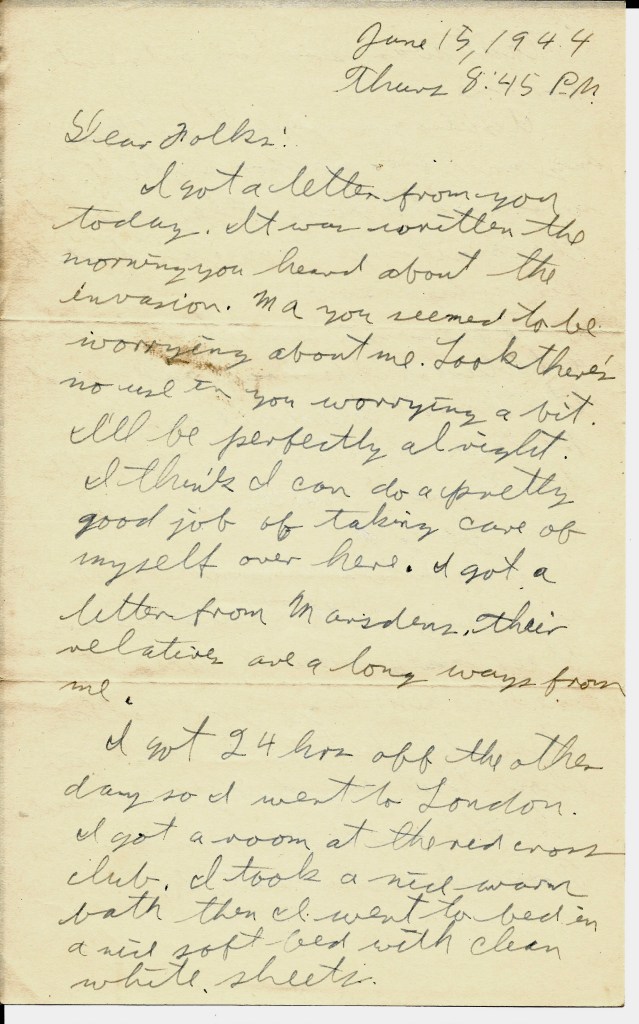 June 15, 1944
Thurs 8:45 P.M.
Dear Folks:
I got a letter from you
today. It was written the
morning you heard about the
invasion. Ma you seemed to be
worrying about me. Look there's
no use in you worrying a bit.
I'll be perfectly alright.
I think I can do a pretty
good job of taking care of
myself over here. I got a
letter from Marsdens, their
relatives are a long ways from
me.
I got 24 hrs off the other
day so I went to London.
I got a room at the red cross
club. I took a nice warm
bath then I went to bed in
a nice soft bed with clean
white sheets.